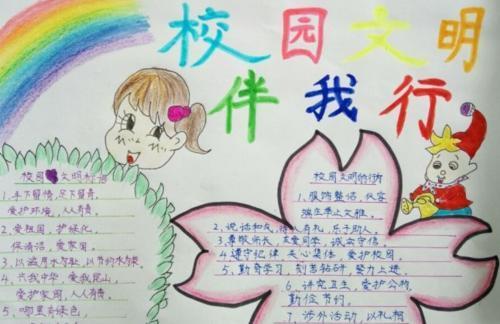 校园文明
伴我行
校园文明标语
1、手下留情,足下留青,
爱护环境,人人有责。
2、爱祖国,护绿化,
保清洁,爱家园。
3、以滥用水为耻,以节约水为荣。
4、兴我中华,爱我山,
爱护家园,人人有责。
5、哪里有绿色,
校园文明的行
1、服饰整洁,仪容
端庄举止文雅。
2、说话和气,待人有礼,乐于助人。
3、尊敬师长,友爱同学,诚实守信。
4、遵守纪律,关心集体,爱护校园。
5、勤奋学习,刻苦钻研,努力上进。
6、讲究卫生,爱护公物,
勤俭节约。
7、涉外活动,以礼相